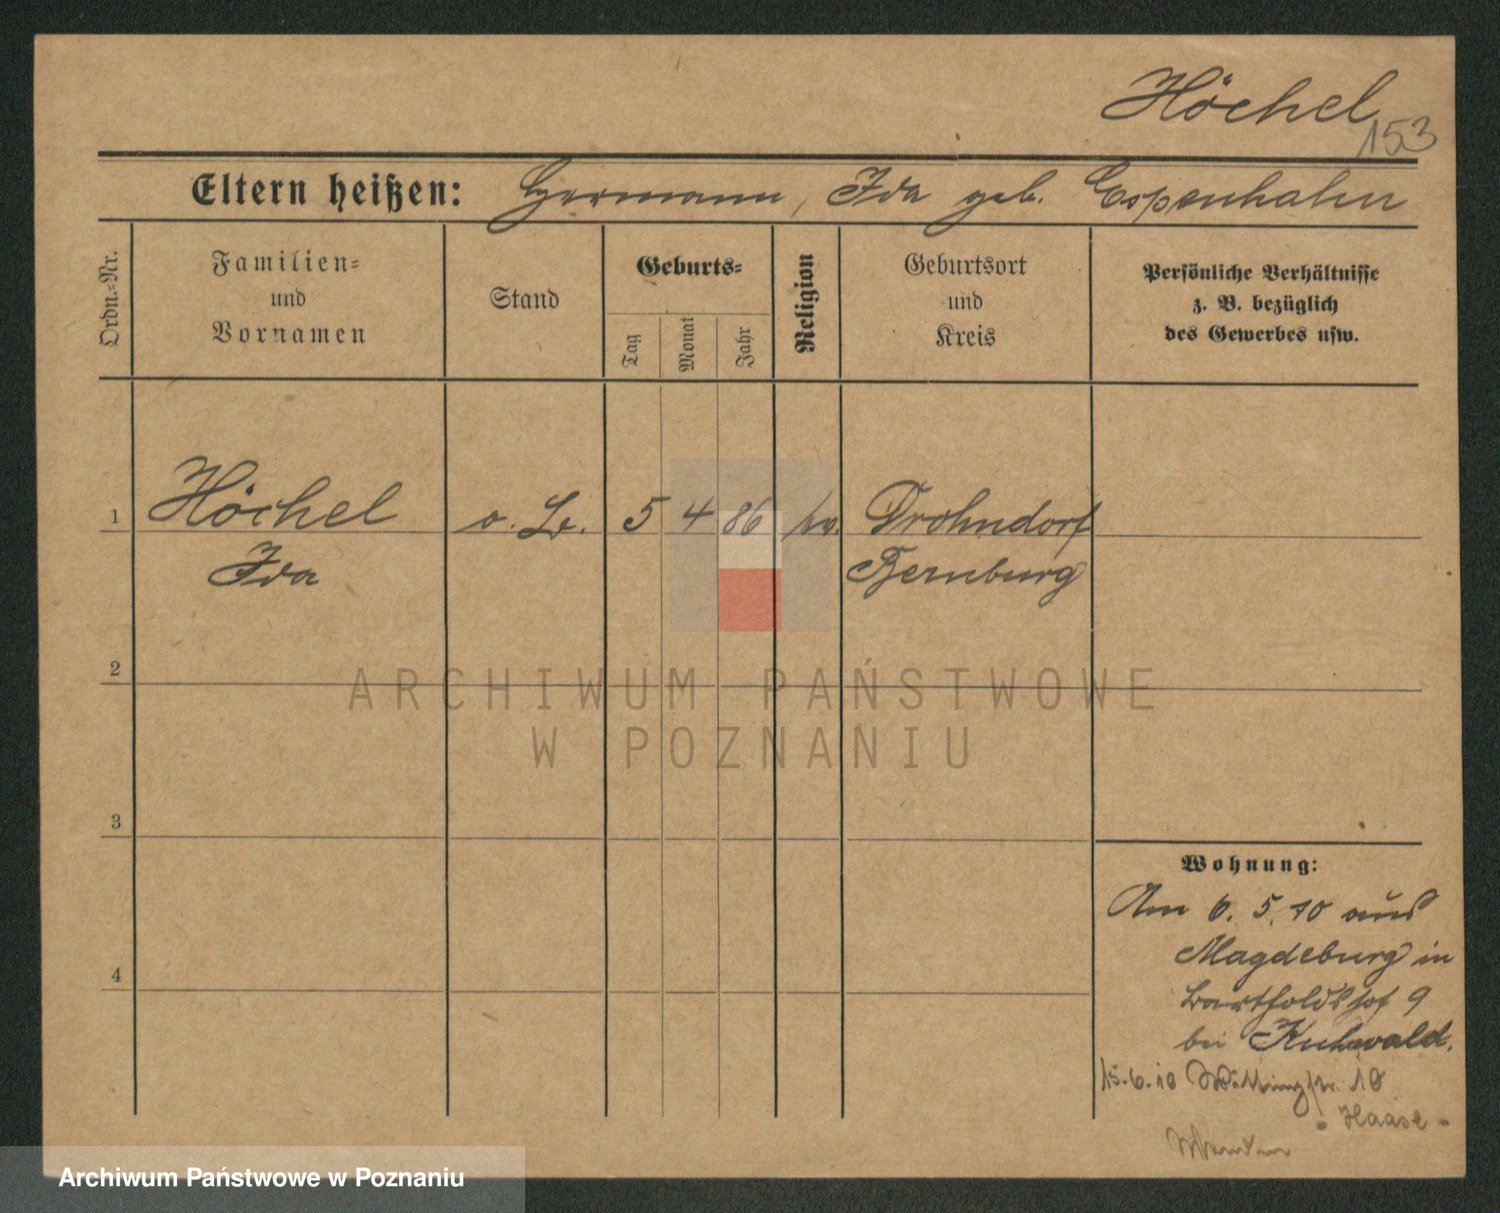 Höchel
153
Eltern heißen: Hermann, Ida geb. Espenhahn
Ordn.-Nr.
Familien-
und
Vornamen
Stand
Geburts-
Tag
Monat
Jahr
Religion
Geburtsort
und
Kreis
Persönliche Verhältnisse
z. B. bezüglich
des Gewerbes usw.
1 Höchel o. 5 4 86 Drohndorf
Ida Bernburg
2
ARCHIWUM PAŃSTWOWE
W POZNANIU
3
Wohnung:
Am 6. 5. 10 aus
Magdeburg in
Bartholdshof 9
bei Kuhwald.
4
15.6.10 18
- Haase -
Archiwum Państwowe w Poznaniu